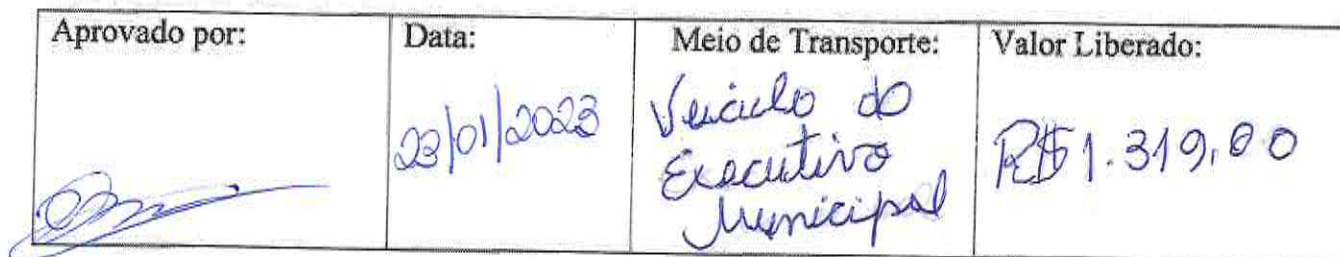 Aprovado por: Data: Meio de Transporte: Valor Liberado:
23/01/2023
Veículo do
Executivo
Municipal
R$ 1.319,00